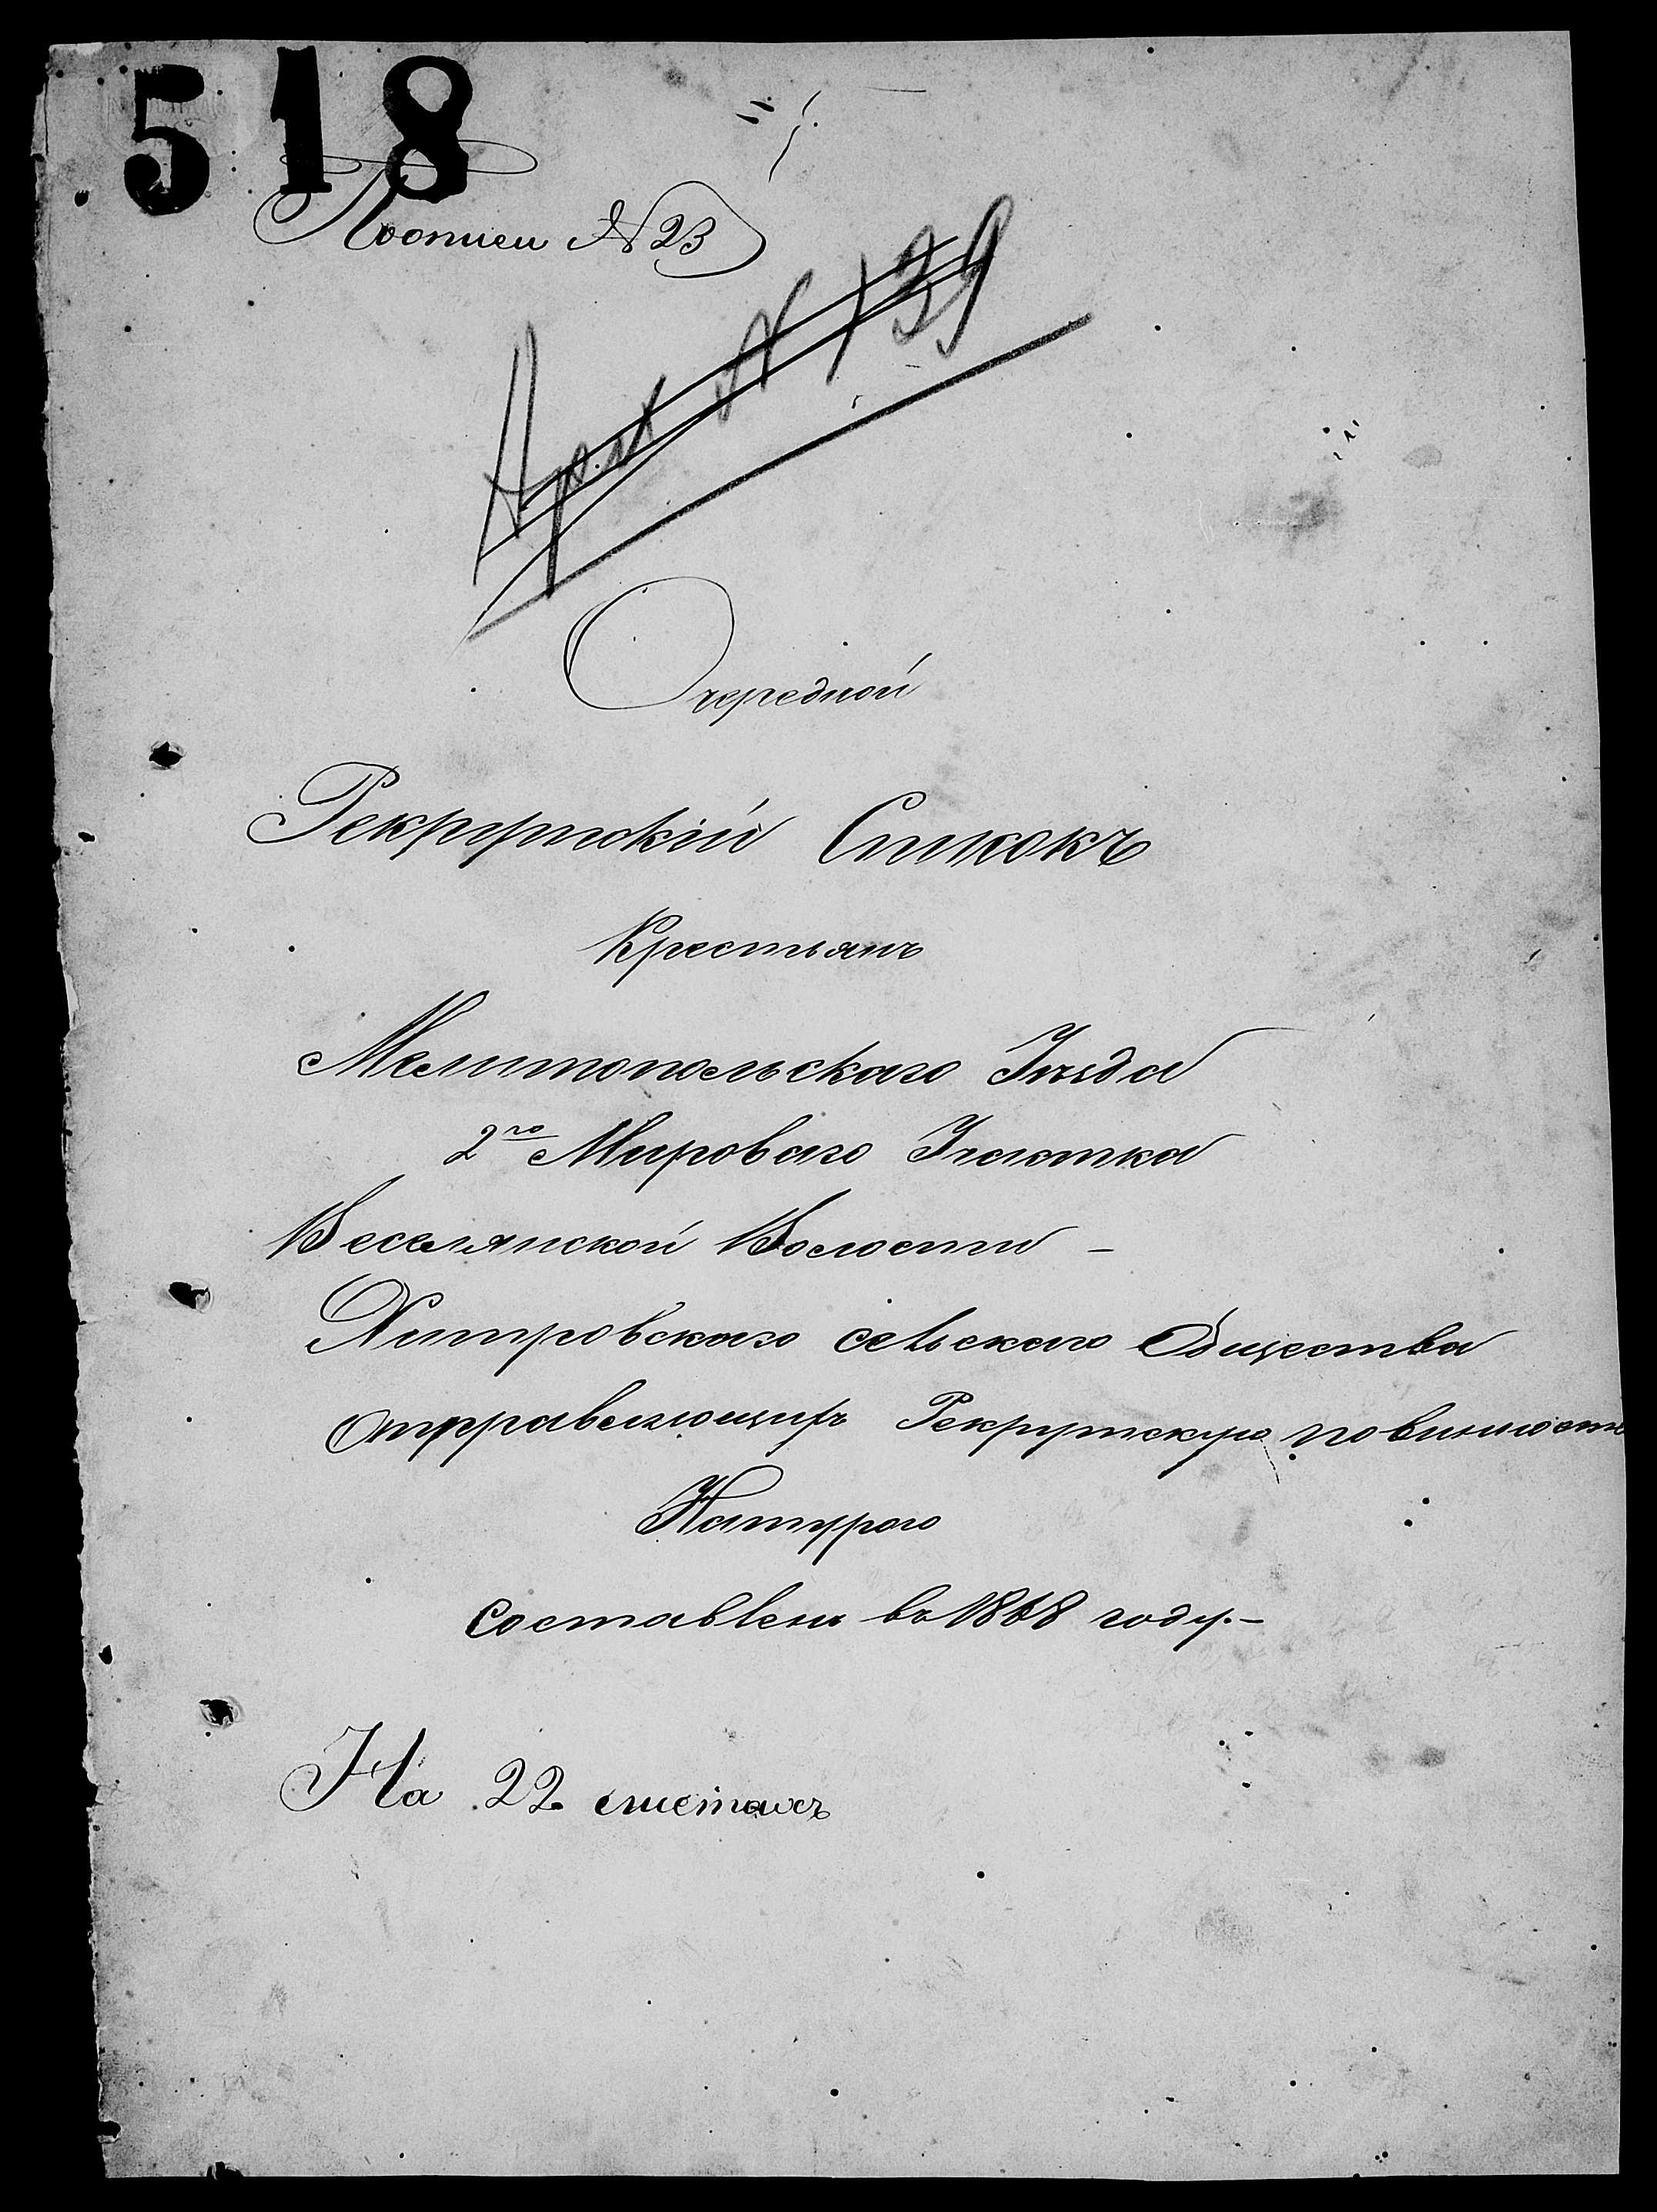 518
По описи № 23
Арх № 139
Очередной
Рекрутскій Списокъ
Крестьянъ
Мелитопольскаго Уѣзда
2го Мироваго Участка
Веселянской Волости –
Хитровскаго сельскаго Общества
Отправляющихъ Рекрутскую повинность
Натурою
Составленъ въ 1868 году.–
На 22 листахъ